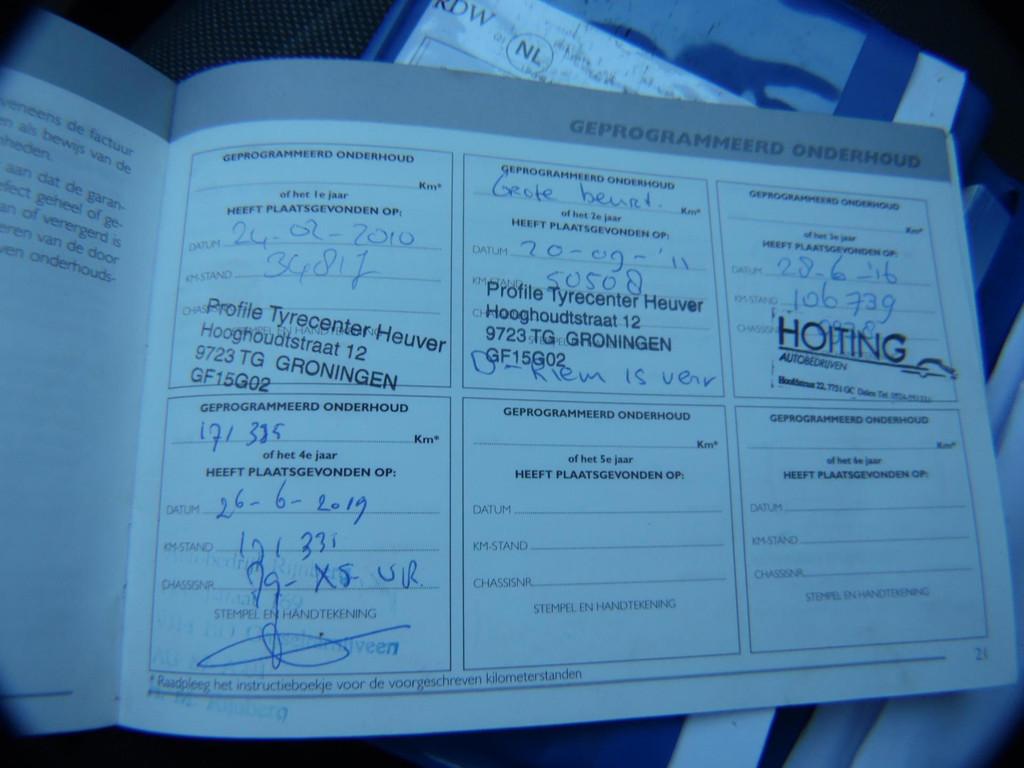 RDW
NL
veneens de factuur
en als bewijs van de
nheden.
aan dat de garan-
efect geheel of ge-
an of verergerd is
eren van de door
ven onderhouds-
GEPROGRAMMEERD ONDERHOUD
GEPROGRAMMEERD ONDERHOUD
Km*
of het 1e jaar
HEEFT PLAATSGEVONDEN OP:
DATUM 24-02-2010
KM-STAND 34817
Profile Tyrecenter Heuver
Hooghoudtstraat 12
9723 TG GRONINGEN
GF15G02
GEPROGRAMMEERD ONDERHOUD
Grote beurt. Km*
of het 2e jaar
HEEFT PLAATSGEVONDEN OP:
DATUM 20-09-'11
KM-STAND 50508
Profile Tyrecenter Heuver
Hooghoudtstraat 12
9723 TG GRONINGEN
GF15G02
D-Riem is verv
GEPROGRAMMEERD ONDERHOUD
Km*
of het 3e jaar
HEEFT PLAATSGEVONDEN OP:
DATUM 28-6-'16
KM-STAND 106739
CHASSISNR
HOITING
AUTOBEDRIJVEN
Hoofdstraat 22, 7751 GC Dalen Tel.
GEPROGRAMMEERD ONDERHOUD
171335 Km*
of het 4e jaar
HEEFT PLAATSGEVONDEN OP:
DATUM 26-6-2019
KM-STAND 171335
CHASSISNR 79-XS-VR.
STEMPEL EN HANDTEKENING
GEPROGRAMMEERD ONDERHOUD
Km*
of het 5e jaar
HEEFT PLAATSGEVONDEN OP:
DATUM
KM-STAND
CHASSISNR.
STEMPEL EN HANDTEKENING
GEPROGRAMMEERD ONDERHOUD
Km*
of het 6e jaar
HEEFT PLAATSGEVONDEN OP:
DATUM
KM-STAND
CHASSISNR.
STEMPEL EN HANDTEKENING
* Raadpleeg het instructieboekje voor de voorgeschreven kilometerstanden
21